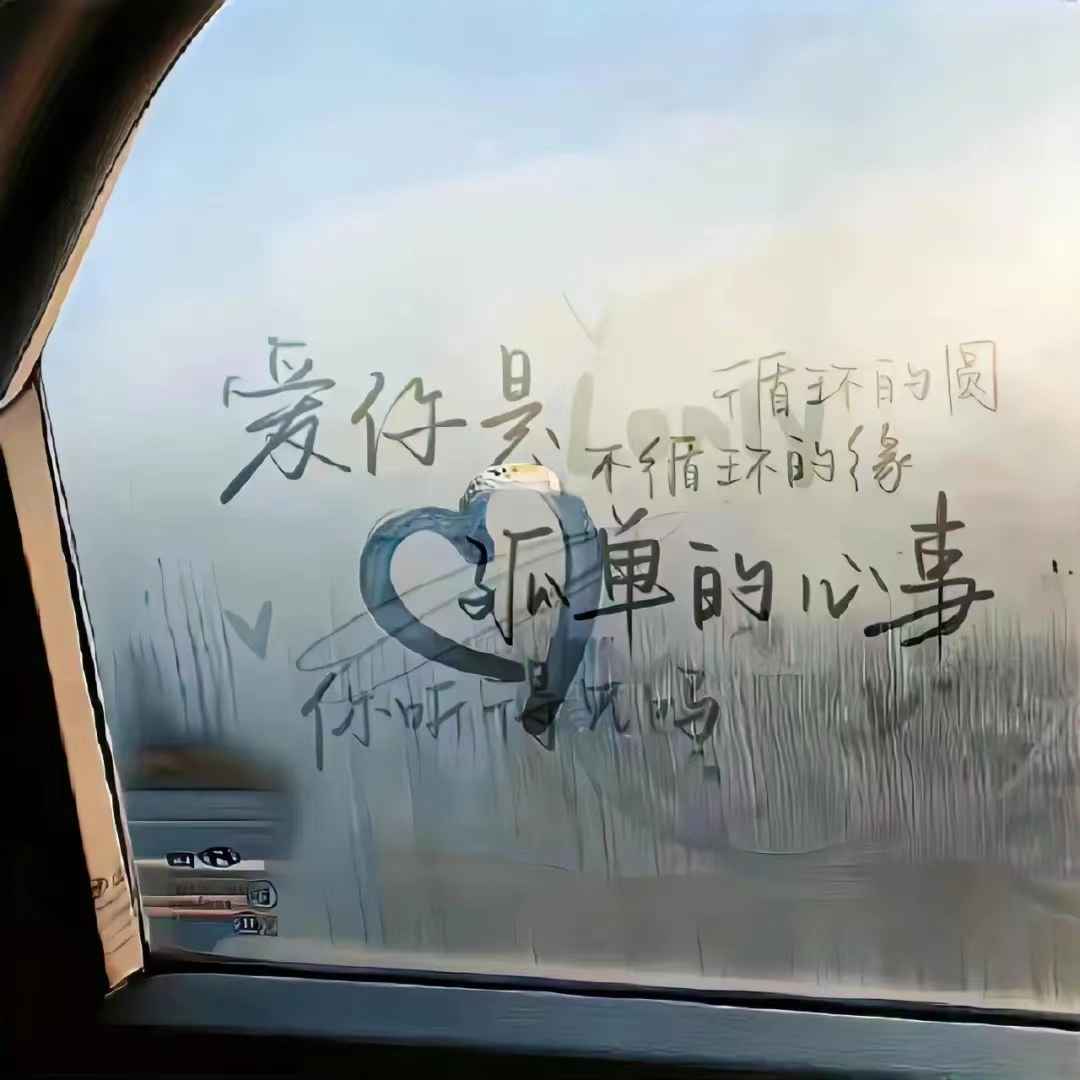 爱你是
循环的圆
不循环的缘
孤单的心事
你听得见吗